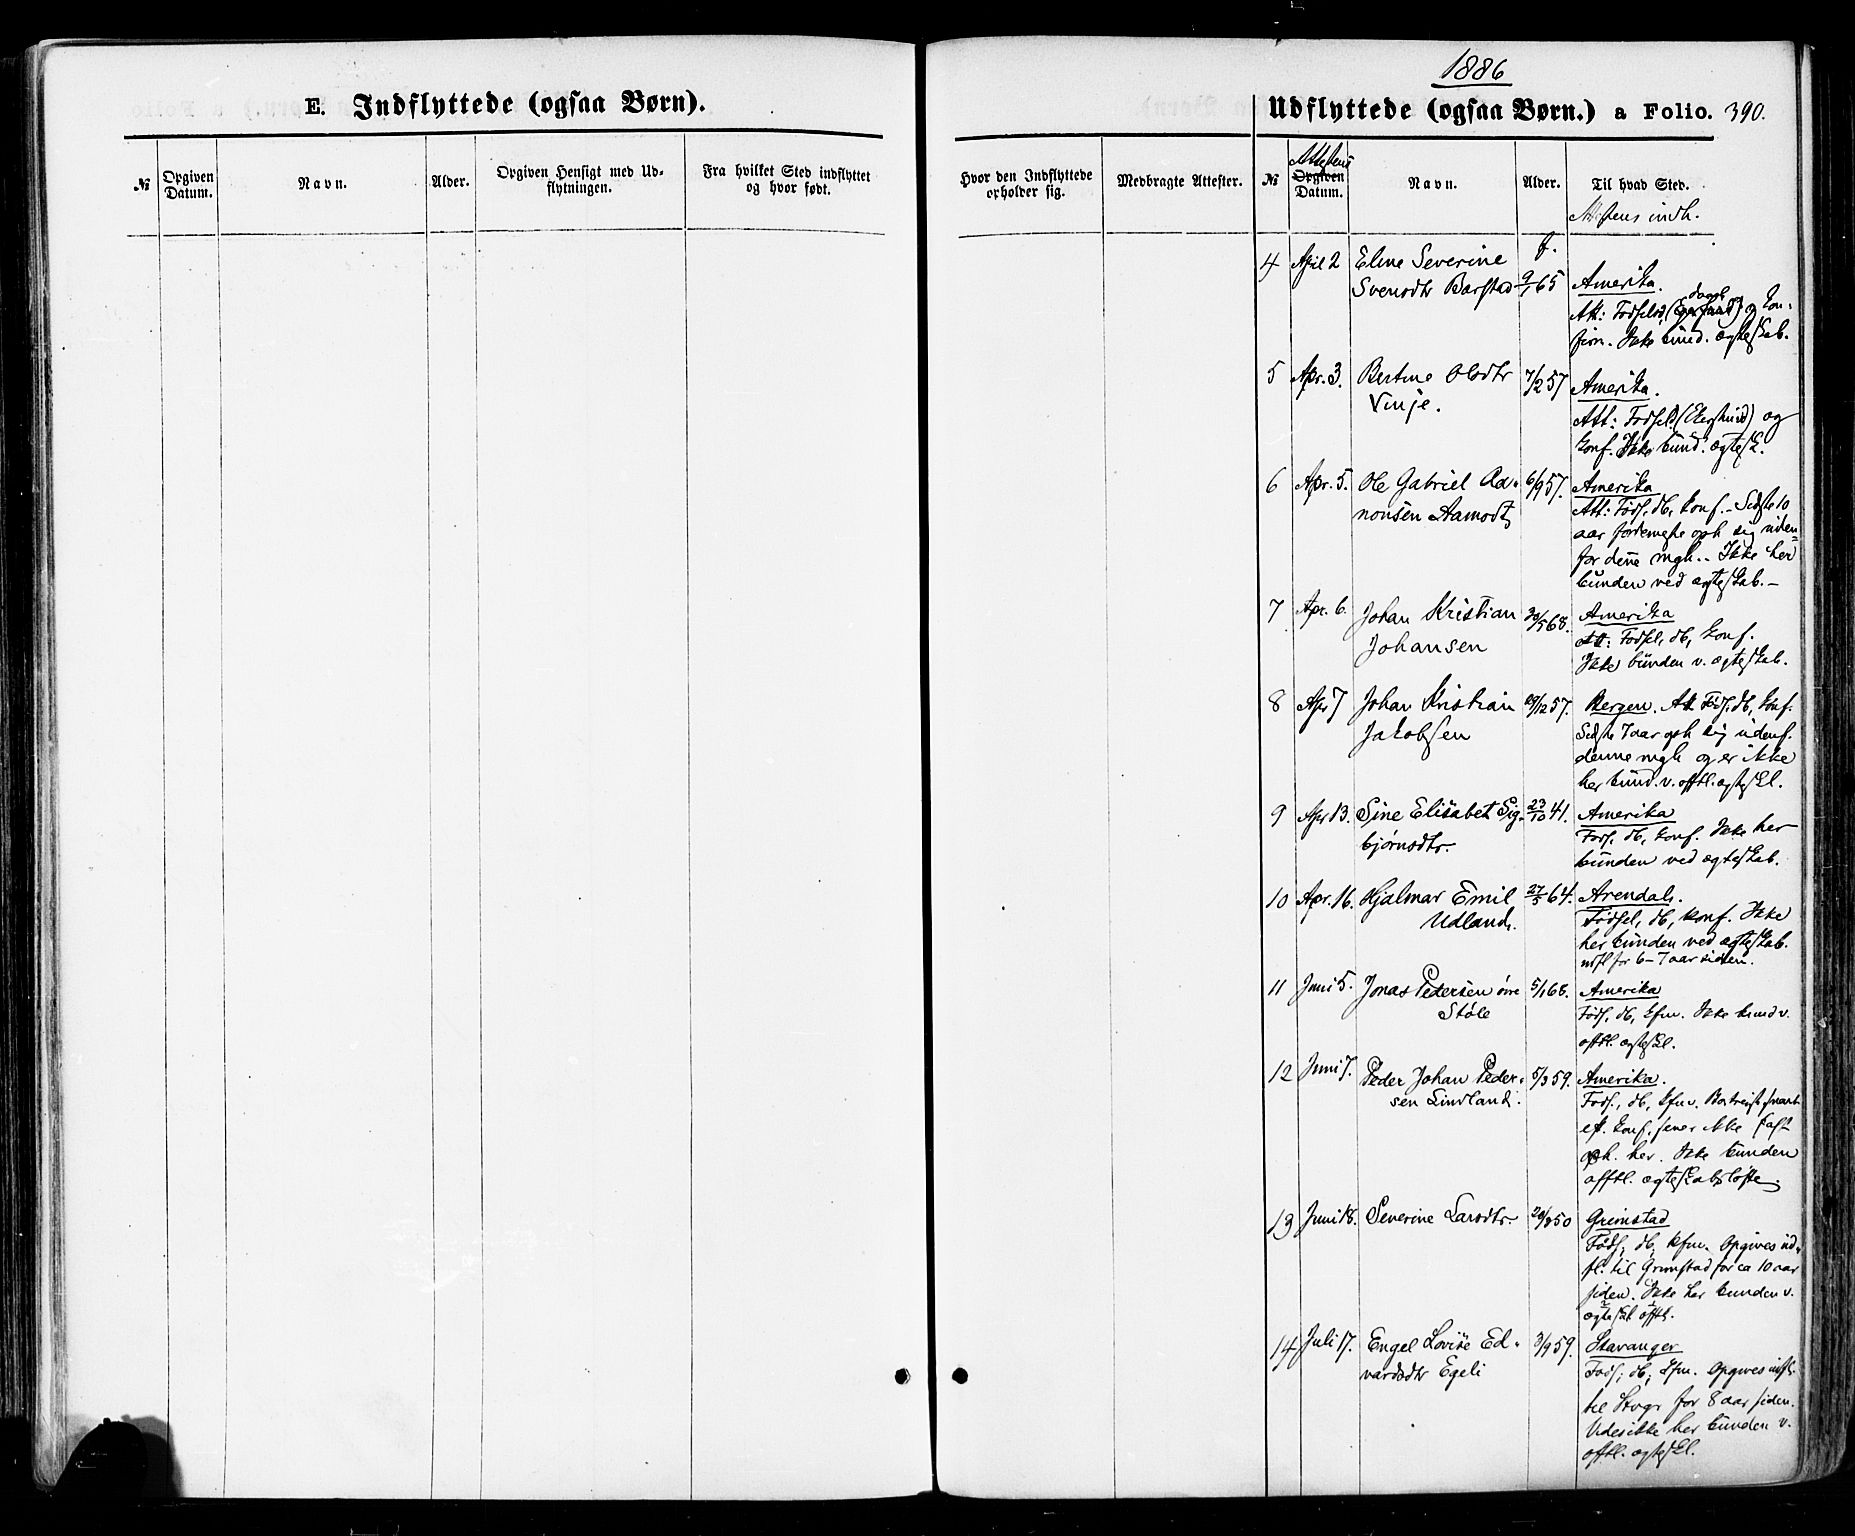 E. Indflyttede (ogsaa Børn).
№
Opgiven Datum.
Navn.
Alder.
Opgiven Hensigt med Ud-
flytningen.
Fra hvilket Sted indflyttet
og hvor født.
1886
Udflyttede (ogsaa Børn.) a Folio. 390.
Hvor den Indflyttede
opholder sig.
Medbragte Attester.
№
Attestens
Opgiven
Datum.
Navn.
Alder.
Til hvad Sted.
Attestens indh.
f.
4 April 2 Eline Severine
Svensdtr Barstad 9/1 65 Amerika.
Att: Fødsels, og Kon-
firm. Ikke bund. ægteskab.
5 Apr. 3. Bertine Olsdtr 7/2 57 Amerika.
Vinje.
Att: Fødsel (Ekersund) og
Konf. Ikke bund. ægtesk.
6 Apr. 5. Ole Gabriel Aa- 6/9 57. Amerika
nonsen Aamodt Att: Føds, db, konf. - Sidste 10
aar oph sig uden-
for denne mgh. - Ikke her
bunden ved ægteskab. -
7 Apr. 6. Johan Kristian 30/5 68. Amerika
Johansen Att: Fødsel, db, konf.
Ikke bunden v. ægteskab.
8 Apr 7 Johan Kristian 29/12 57. Bergen. Att Føds, db, konf.
Jakobsen Sidste 7 aar oph sig udenf.
denne mgh og er ikke
her bund. v. offtl. ægteskl.
9 Apr 13. Sine Elisabet Sig- 23/10 41. Amerika
bjørnsdtr. Føds, db, konf. Ikke her
bunden ved ægteskab.
10 Apr. 16. Hjalmar Emil 27/5 64. Arendal.
Udland. Fødsel, db, konf. Ikke
her bunden ved ægteskab.
udfl for 6-7 aar siden.
11 Juni 5. Jonas Pedersen øvre 5/1 68. Amerika
Støle Føds, db, kfm. Ikke bund v.
offtl. ægteskl.
12 Juni 7. Peder Johan Peder- 5/3 59. Amerika.
sen Lindland. Føds., db, kfm. Bortreist snart
eft. konf., siden ikke fast
oph. her. Ikke bunden
offtl. ægteskabsløfte.
13 Juni 18. Severine Larsdtr. 20/3 50 Grimstad
Føds, db, kfm. Opgives ud-
fl. til Grimstad for ca 10 aar
siden. Ikke her bunden v.
ægteskb offtl.
14 Juli 17. Engel Lovise Ed- 3/9 59. Stavanger
vardsdtr Egeli Føds, db, kfm. Opgives udfl.
til Stvgr for 8 aar siden.
Vides ikke her bunden v.
offtl. ægteskl.